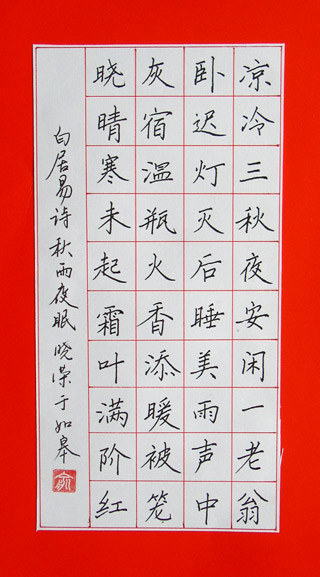 凉冷三秋夜安闲一老翁
卧迟灯灭后睡美雨声中
灰宿温瓶火香添暖被笼
晓晴寒未起霜叶满阶红
白居易诗秋雨夜眠 晓荣于如皋
俞